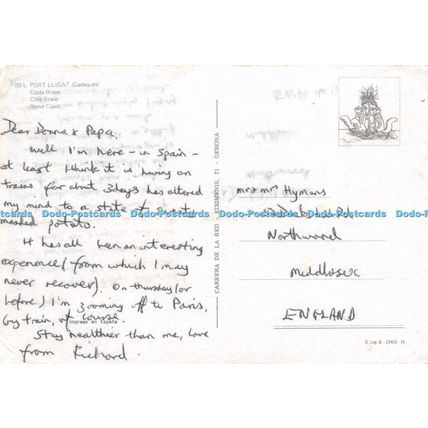 PORT LLIGAT (Cadaqués)
Costa Brava
Côte Brave
Brave Coast
Dear Donna & Papa,
Well I'm here - in Spain -
at least I think it is, living on
trains for about 3 days has altered
my mind to a state of
mashed potato.
It has all been an interesting
experience (from which I may
never recover). On thursday (or
before) I'm zooming off to Paris,
by train, of course.
Impreso en España
Stay healthier than me, love
from Richard.
CARRERA DE LA RED - GERONA
Mr & Mrs Hymans
Northwood
Middlesex
ENGLAND
Dodo-Postcards Dodo-Postcards Dodo-Postcards Dodo-Postcards Dodo-Postcards